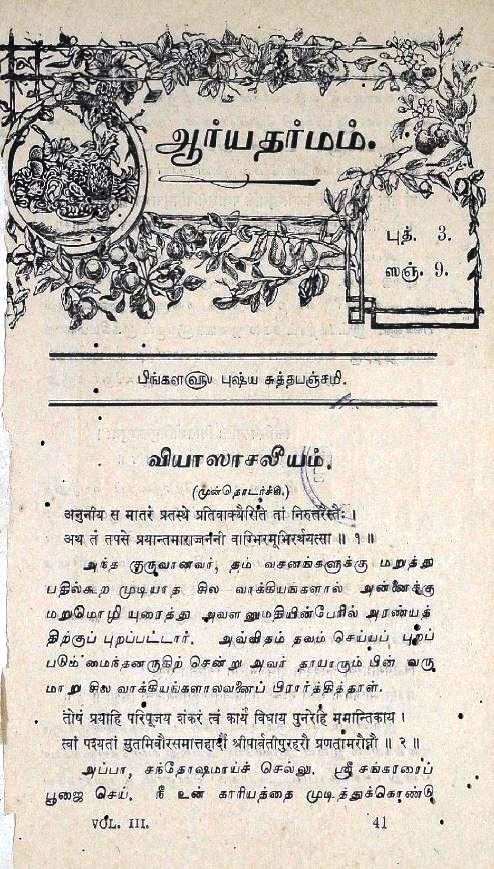 ஆர்யதர்மம்.
புத். 3.
ஸஞ். 9.
பிங்கள௵ புஷ்ய சுத்தபஞ்சமி.
வியாஸாசலீயம்.
(முன்தொடர்ச்சி.)
अनुनीय स मातरं प्रतस्थे प्रतिवाक्यैरिति तां निरुत्तरैस्तैः ।
अथ तं तपसे प्रयान्तमाराज्जननी वाग्भिरमूभिरर्थयत्सा ॥ १ ॥
அந்த குருவானவர், தம் வசனங்களுக்கு மறுத்து
பதில்கூற முடியாத சில வாக்கியங்களால் அன்னைக்கு
மறுமொழி யுரைத்து அவளனுமதியின்பேரில் அரண்யத்
திற்குப் புறப்பட்டார். அவ்விதம் தவம் செய்யப் புறப்
படும் மைந்தனருகிற் சென்று அவர் தாயாரும் பின் வரு
மாறு சில வாக்கியங்களாலவனைப் பிரார்த்தித்தாள்.
तोषं प्रयाहि परिपूजय शंकरं त्वं कार्यं विधाय पुनरेहि ममान्तिकाय ।
त्वां पश्यतां सुतमिवौरसमात्तहार्दौ श्रीपार्वतीपुरहरौ प्रणतामरौघौ ॥ २ ॥
அப்பா, சந்தோஷமாய்ச் செல்லு. ஸ்ரீ சங்கரரைப்
பூஜை செய். நீ உன் காரியத்தை முடித்துக்கொண்டு
VOL. III.
41